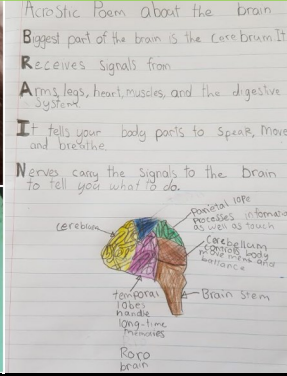 Acrostic Poem about the brain
Biggest part of the brain is the cerebrum It
Receives signals from
Arms, legs, heart, muscles, and the digestive
system
It tells your body parts to speak, move
and breathe
Nerves carry the signals to the brain
to tell you what to do.
cerebrum
Parietal lope
processes infomatio
as well as touch
Cerebellum
controls body
movement and
ballance
temporal
lobes
handle
long-time
memories
Brain stem
Roro
brain